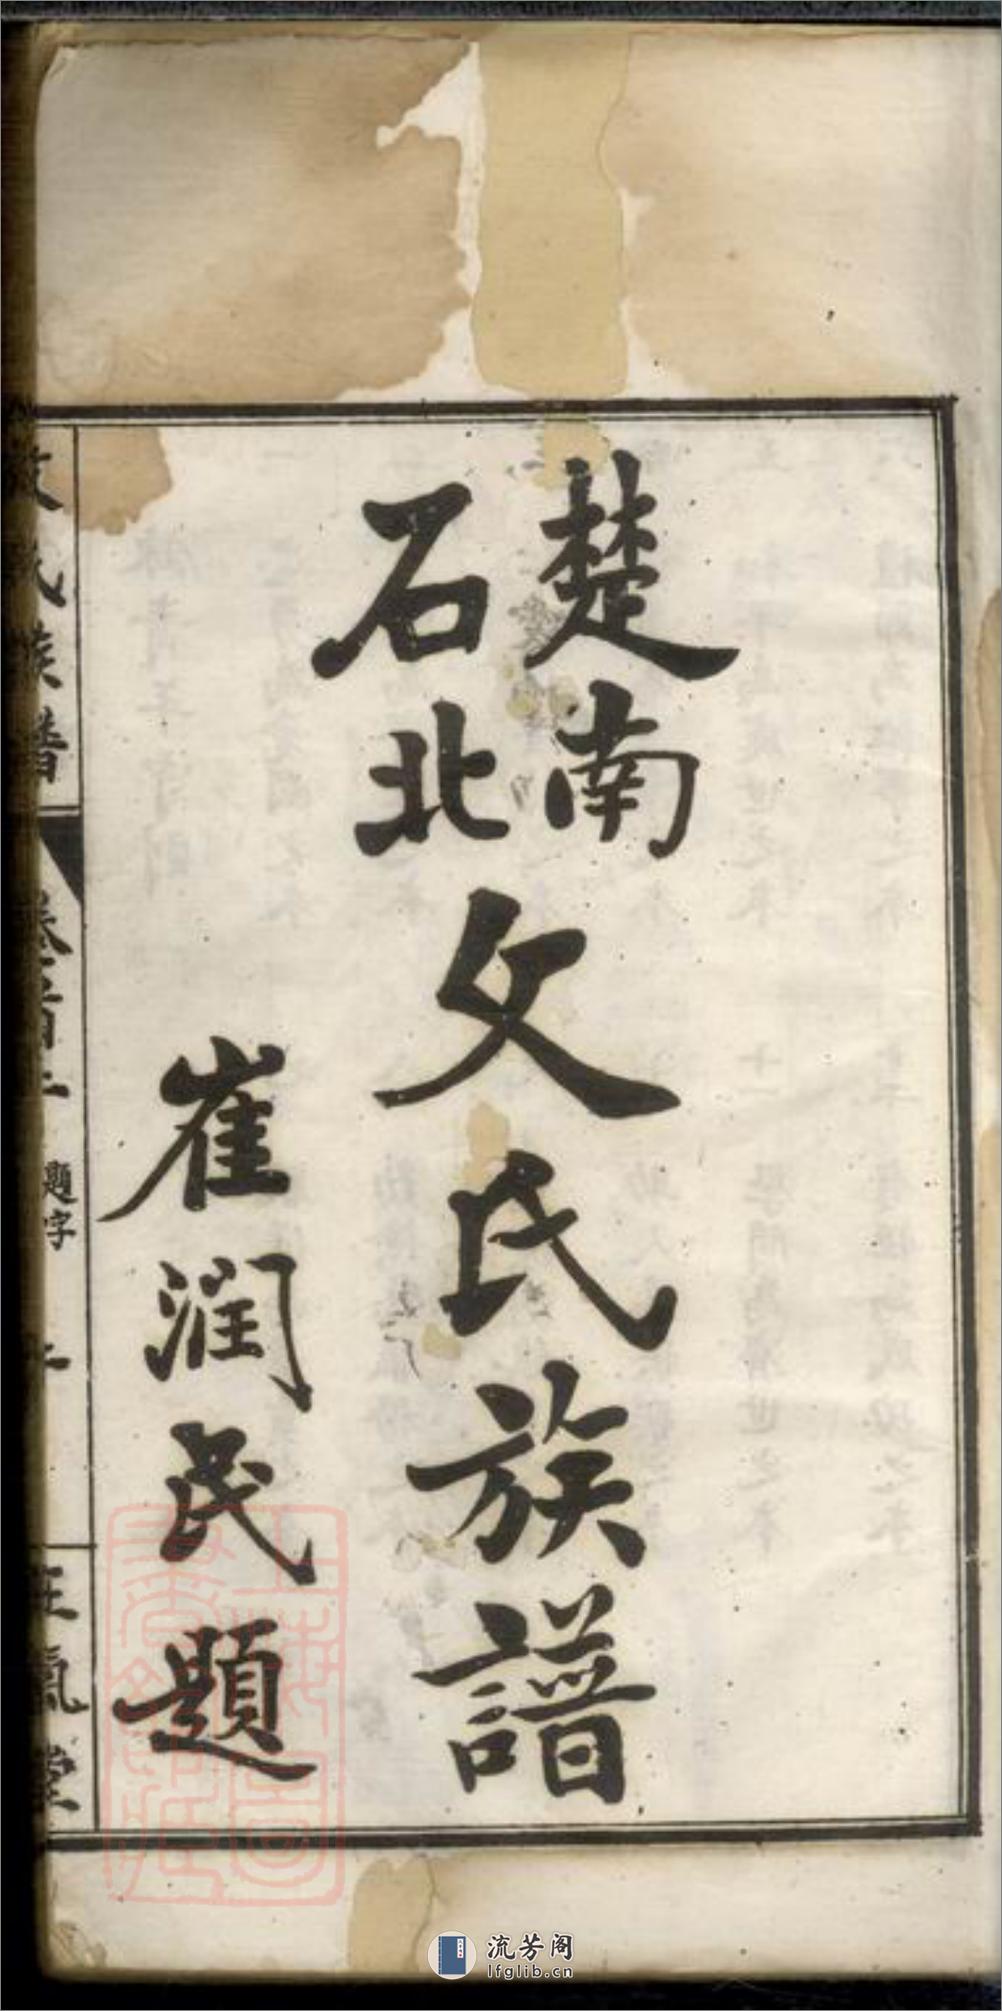 楚南
石北
文氏族譜
崔润民題
文氏族譜
卷首上
題字
正氣堂
流芳阁
lfglib.cn